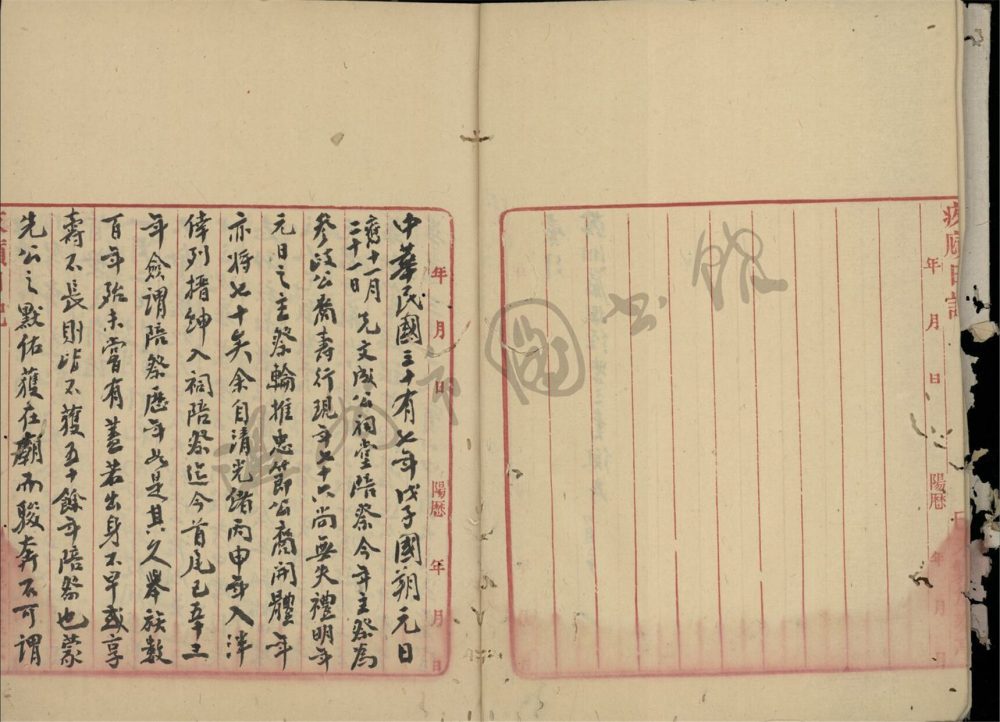 年 月 日 陽厤 年 月 日
年 月 日 陽厤 年 月 日
中華民國三十有七年戊子國朔元日
舊十一月二十一日 先文成公祠堂陪祭今年主祭為
參政公裔壽行現年七十六尚無失禮明年
元日之主祭輪推忠節公裔開體年
亦將七十矣余自清光緒丙申年入泮
倖列搢紳入祠陪祭迄今首尾已五十三
年僉謂陪祭歷年此是其久舉族數
百年殆未嘗有蓋若出身不早或享
壽不長則皆不獲五十餘年陪祭也蒙
先公之默佑獲在廟而駿奔不可謂
溫州市圖書館